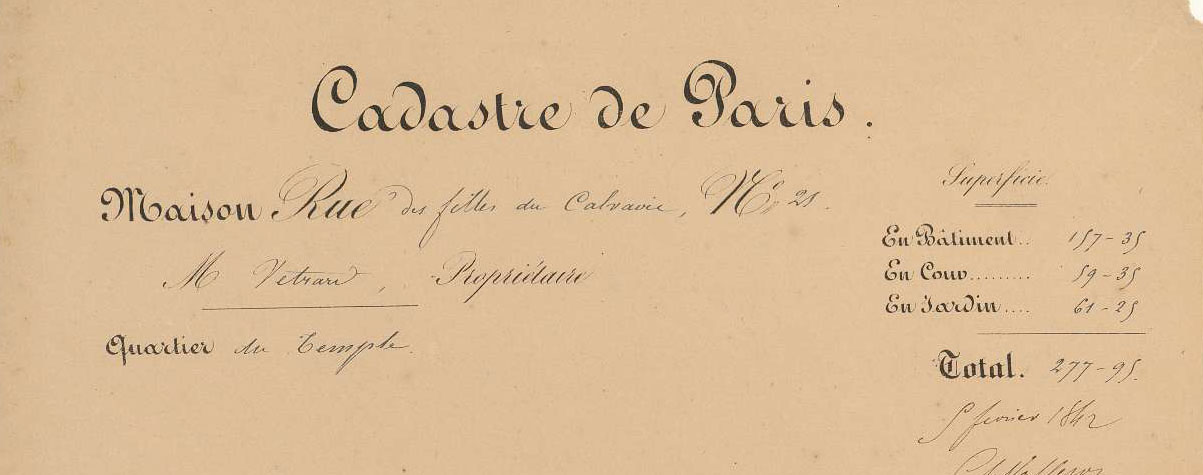 Cadastre de Paris.
Maison Rue des filles du Calvaire, Nº 21.
M , Propriétaire
Quartier du Temple.
Superficie.
En Bâtiment.. 157-35
En Cour......... 59-35
En Jardin.... 61-25
Total. 277-95.
5 février 1842